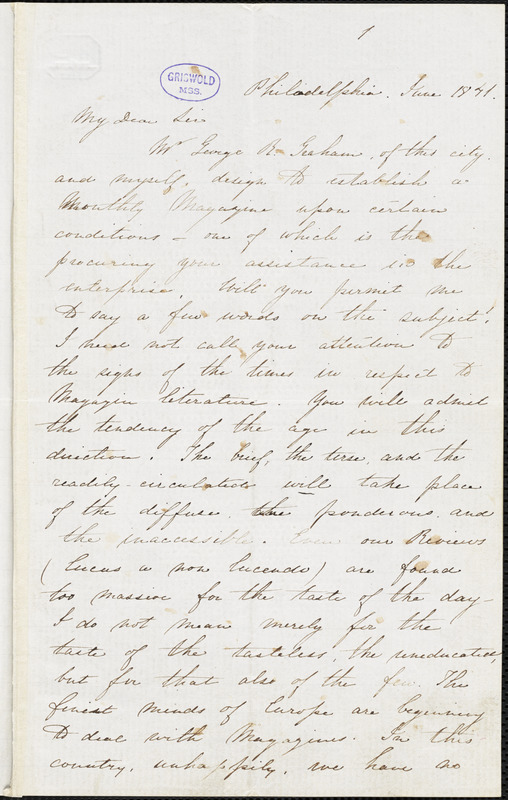 1
GRISWOLD
MSS.
Philadelphia, June 1841.
My Dear Sir
Mr George R. Graham, of this city,
and myself, design to establish a
Monthly Magazine upon certain
conditions – one of which is the
procuring your assistance in the
enterprise. Will you permit me
to say a few words on the subject?
I need not call your attention to
the signs of the times in respect to
Magazine literature. You will admit
the tendency of the age in this
direction. The brief, the terse, and the
readily-circulated will take place
of the diffuse, the ponderous, and
the inaccessible. Even our Reviews
(lucus a non lucendo) are found
too massive for the taste of the day –
I do not mean merely for the
taste of the tasteless, the uneducated,
but for that also of the few. The
finest minds of Europe are beginning
to deal with Magazines. In this
country, unhappily, we have no